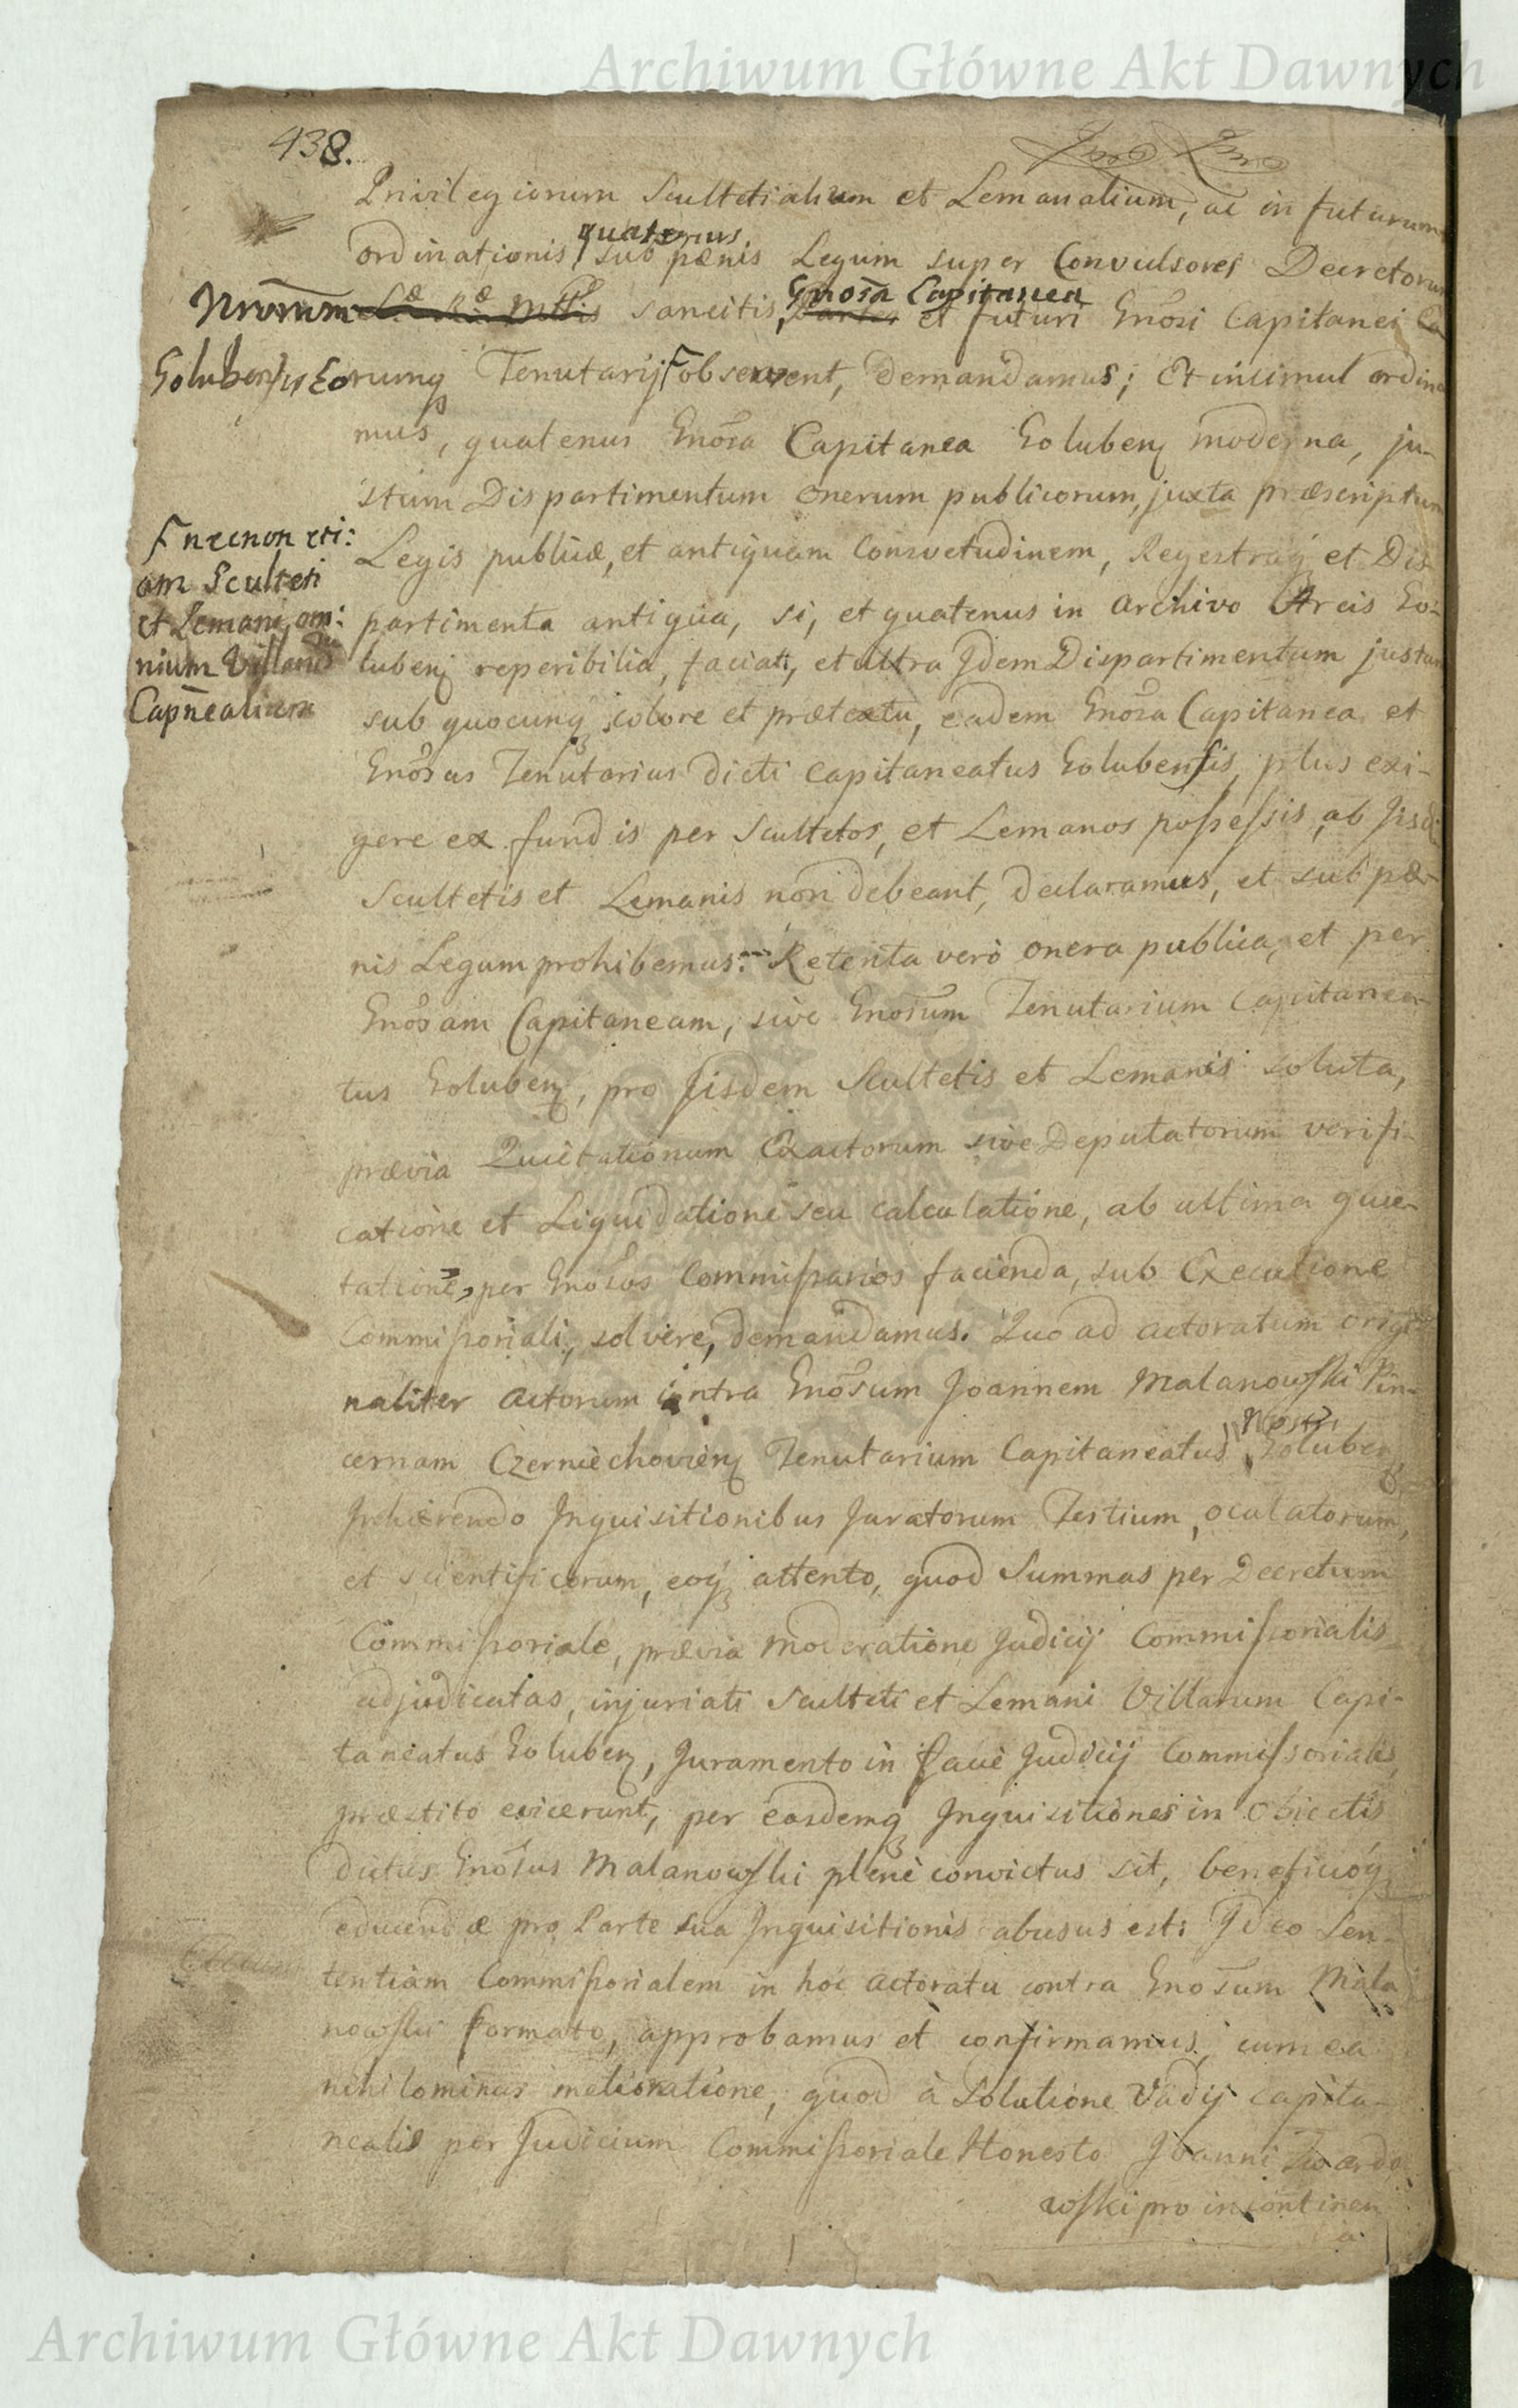 Archiwum Główne Akt Dawnych
438.
Privilegiorum Scultetialium et Lemanalium, ac in futurum
quatenus
ordinationis sub pænis Legum super Convulsores Decretorum
Gnosa Capitanea
Nrorum S.æ R.æ Mttis sancitis, Partes et futuri Gnosi Capitanei
Golubensis Eorumq Tenutarij observent, demandamus; Et insimul ordina
mus, quatenus Gnosa Capitanea Goluben moderna, ju-
stum Dispartimentum onerum publicorum, juxta præscriptum
F necnon eti:
am Sculteti
et Lemani om:
nium Villarum
Capnealium
Legis publicæ, et antiquam Consvetudinem, Regestraq et Dis
partimenta antiqua, si, et quatenus in Archivo Arcis Go-
luben reperibilia, faciat, et ultra Idem Dispartimentum justum
sub quocunq colore et prætextu, eadem Gnosa Capitanea et
Gnosus Tenutarius dicti Capitaneatus Golubensis, plus exi-
gere ex fundis per Scultetos, et Lemanos possessis, ab Iisd
Scultetis et Lemanis non debeant, declaramus, et sub pæ-
nis Legum prohibemus. Retenta verò onera publica, et per
Gnosam Capitaneam, sive Gnosum Tenutarium Capitanea-
tus Goluben, pro Iisdem Scultetis et Lemanis soluta,
prævia Quietationum Exactorum sive Deputatorum verifi-
catione et Liquidatione seu calculatione, ab ultima quie-
tatione, per Gnosos Commissarios facienda, sub Executione
Commissoriali, solvere, demandamus. Quo ad actoratum origi
naliter Actorum contra Gnosum Joannem Malanowski Pin-
Nostri
cernam Czerniechovien Tenutarium Capitaneatus Goluben
Inhærendo Inquisitionibus Juratorum Testium, oculatorum,
et scientificorum, eoq attento, quod Summas per Decretum
Commissoriale, prævia moderatione Judicij Commissorialis
adjudicatas, injuriati Sculteti et Lemani Villarum Capi-
taneatus Goluben, Juramento in facie Judicij Commissorialis
præstito evicerunt, per easdemq Inquisitiones in Obiectis
dictus Gnosus Malanowski plenè convictus sit, beneficióq
educendæ pro Parte sua Inquisitionis abusus est: Ideo Sen-
tentiam Commissorialem in hoc actoratu contra Gnosum Mala
nowski formato, approbamus et confirmamus, cum ea
nihilominus melioratione, quod à Solutione Vadij Capita-
nealis per Judicium Commissoriale Honesto Joanni Twardo
wski pro incontinen
a.
Archiwum Główne Akt Dawnych